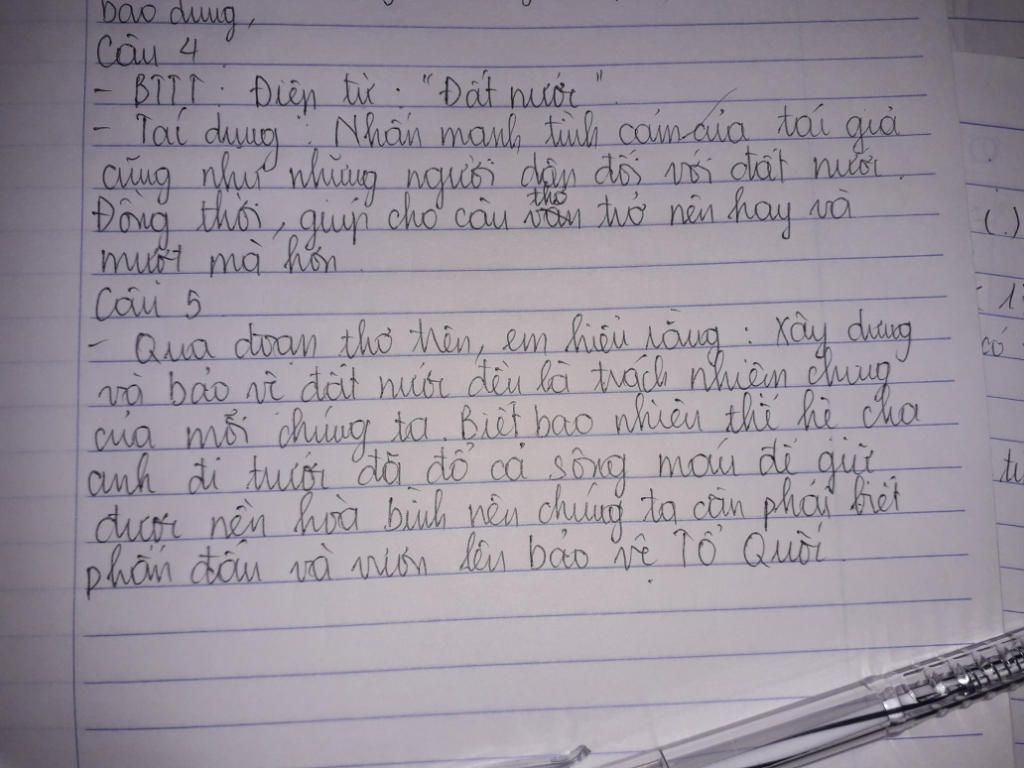 bao dung,
Câu 4
- BTTT : Điệp từ : "Đất nước"
- Tác dụng : Nhấn mạnh tình cảm của tác giả
cũng như những người dân đối với đất nước.
Đồng thời, giúp cho câu thơ trở nên hay và
mượt mà hơn.
Câu 5
- Qua đoạn thơ trên, em hiểu rằng : Xây dựng
và bảo vệ đất nước đều là trách nhiệm chung
của mỗi chúng ta. Biết bao nhiêu thế hệ cha
anh đi trước đã đổ cả sông máu để giữ
được nền hoà bình nên chúng ta cần phải biết
phấn đấu và vươn lên bảo vệ Tổ Quốc.
(.)
có